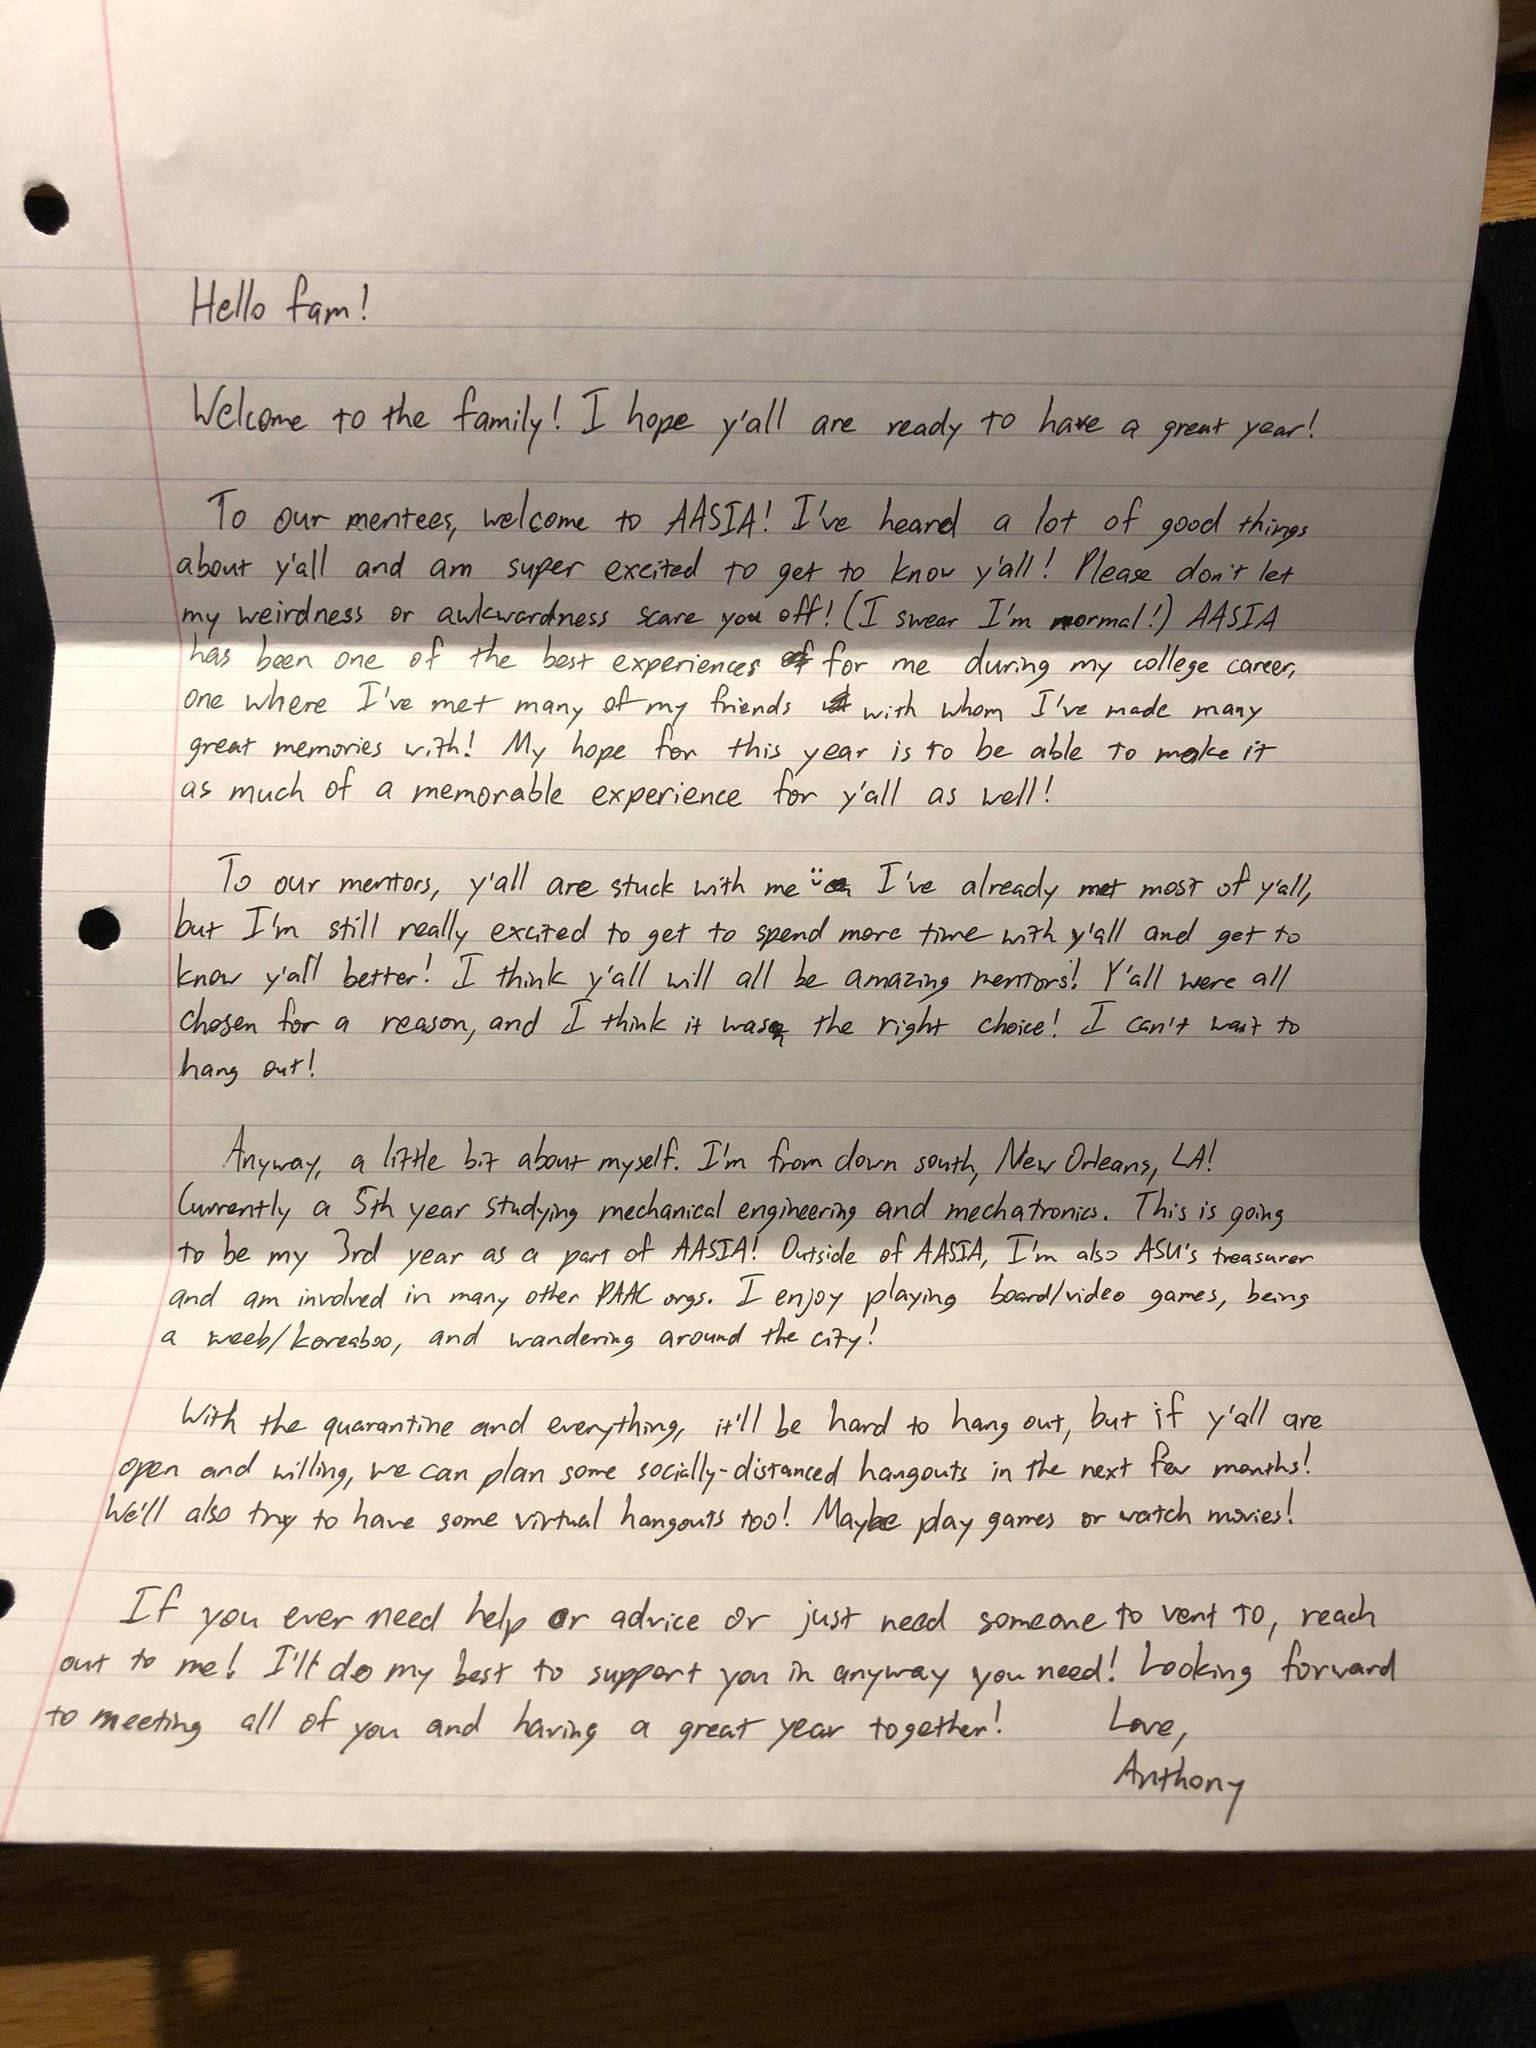 Hello fam!
Welcome to the family! I hope y'all are ready to have a great year!
To our mentees, welcome to AASIA! I've heard a lot of good things
about y'all and am super excited to get to know y'all! Please don't let
my weirdness or awkwardness scare you off! (I swear I'm normal!) AASIA
has been one of the best experiences for me during my college career,
one where I've met many of my friends with whom I've made many
great memories with! My hope for this year is to be able to make it
as much of a memorable experience for y'all as well!
To our mentors, y'all are stuck with me I've already met most of y'all,
but I'm still really excited to get to spend more time with y'all and get to
know y'all better! I think y'all will all be amazing mentors! Y'all were all
chosen for a reason, and I think it was the right choice! I can't wait to
hang out!
Anyway, a little bit about myself. I'm from down south, New Orleans, LA!
Currently a 5th year studying mechanical engineering and mechatronics. This is going
to be my 3rd year as a part of AASIA! Outside of AASIA, I'm also ASU's treasurer
and am involved in many other PAAC orgs. I enjoy playing board/video games, being
a weeb/koreaboo, and wandering around the city!
With the quarantine and everything, it'll be hard to hang out, but if y'all are
open and willing, we can plan some socially-distanced hangouts in the next few months!
We'll also try to have some virtual hangouts too! Maybe play games or watch movies!
If you ever need help or advice or just need someone to vent to, reach
out to me! I'll do my best to support you in anyway you need! Looking forward
to meeting all of you and having a great year together!
Love,
Anthony